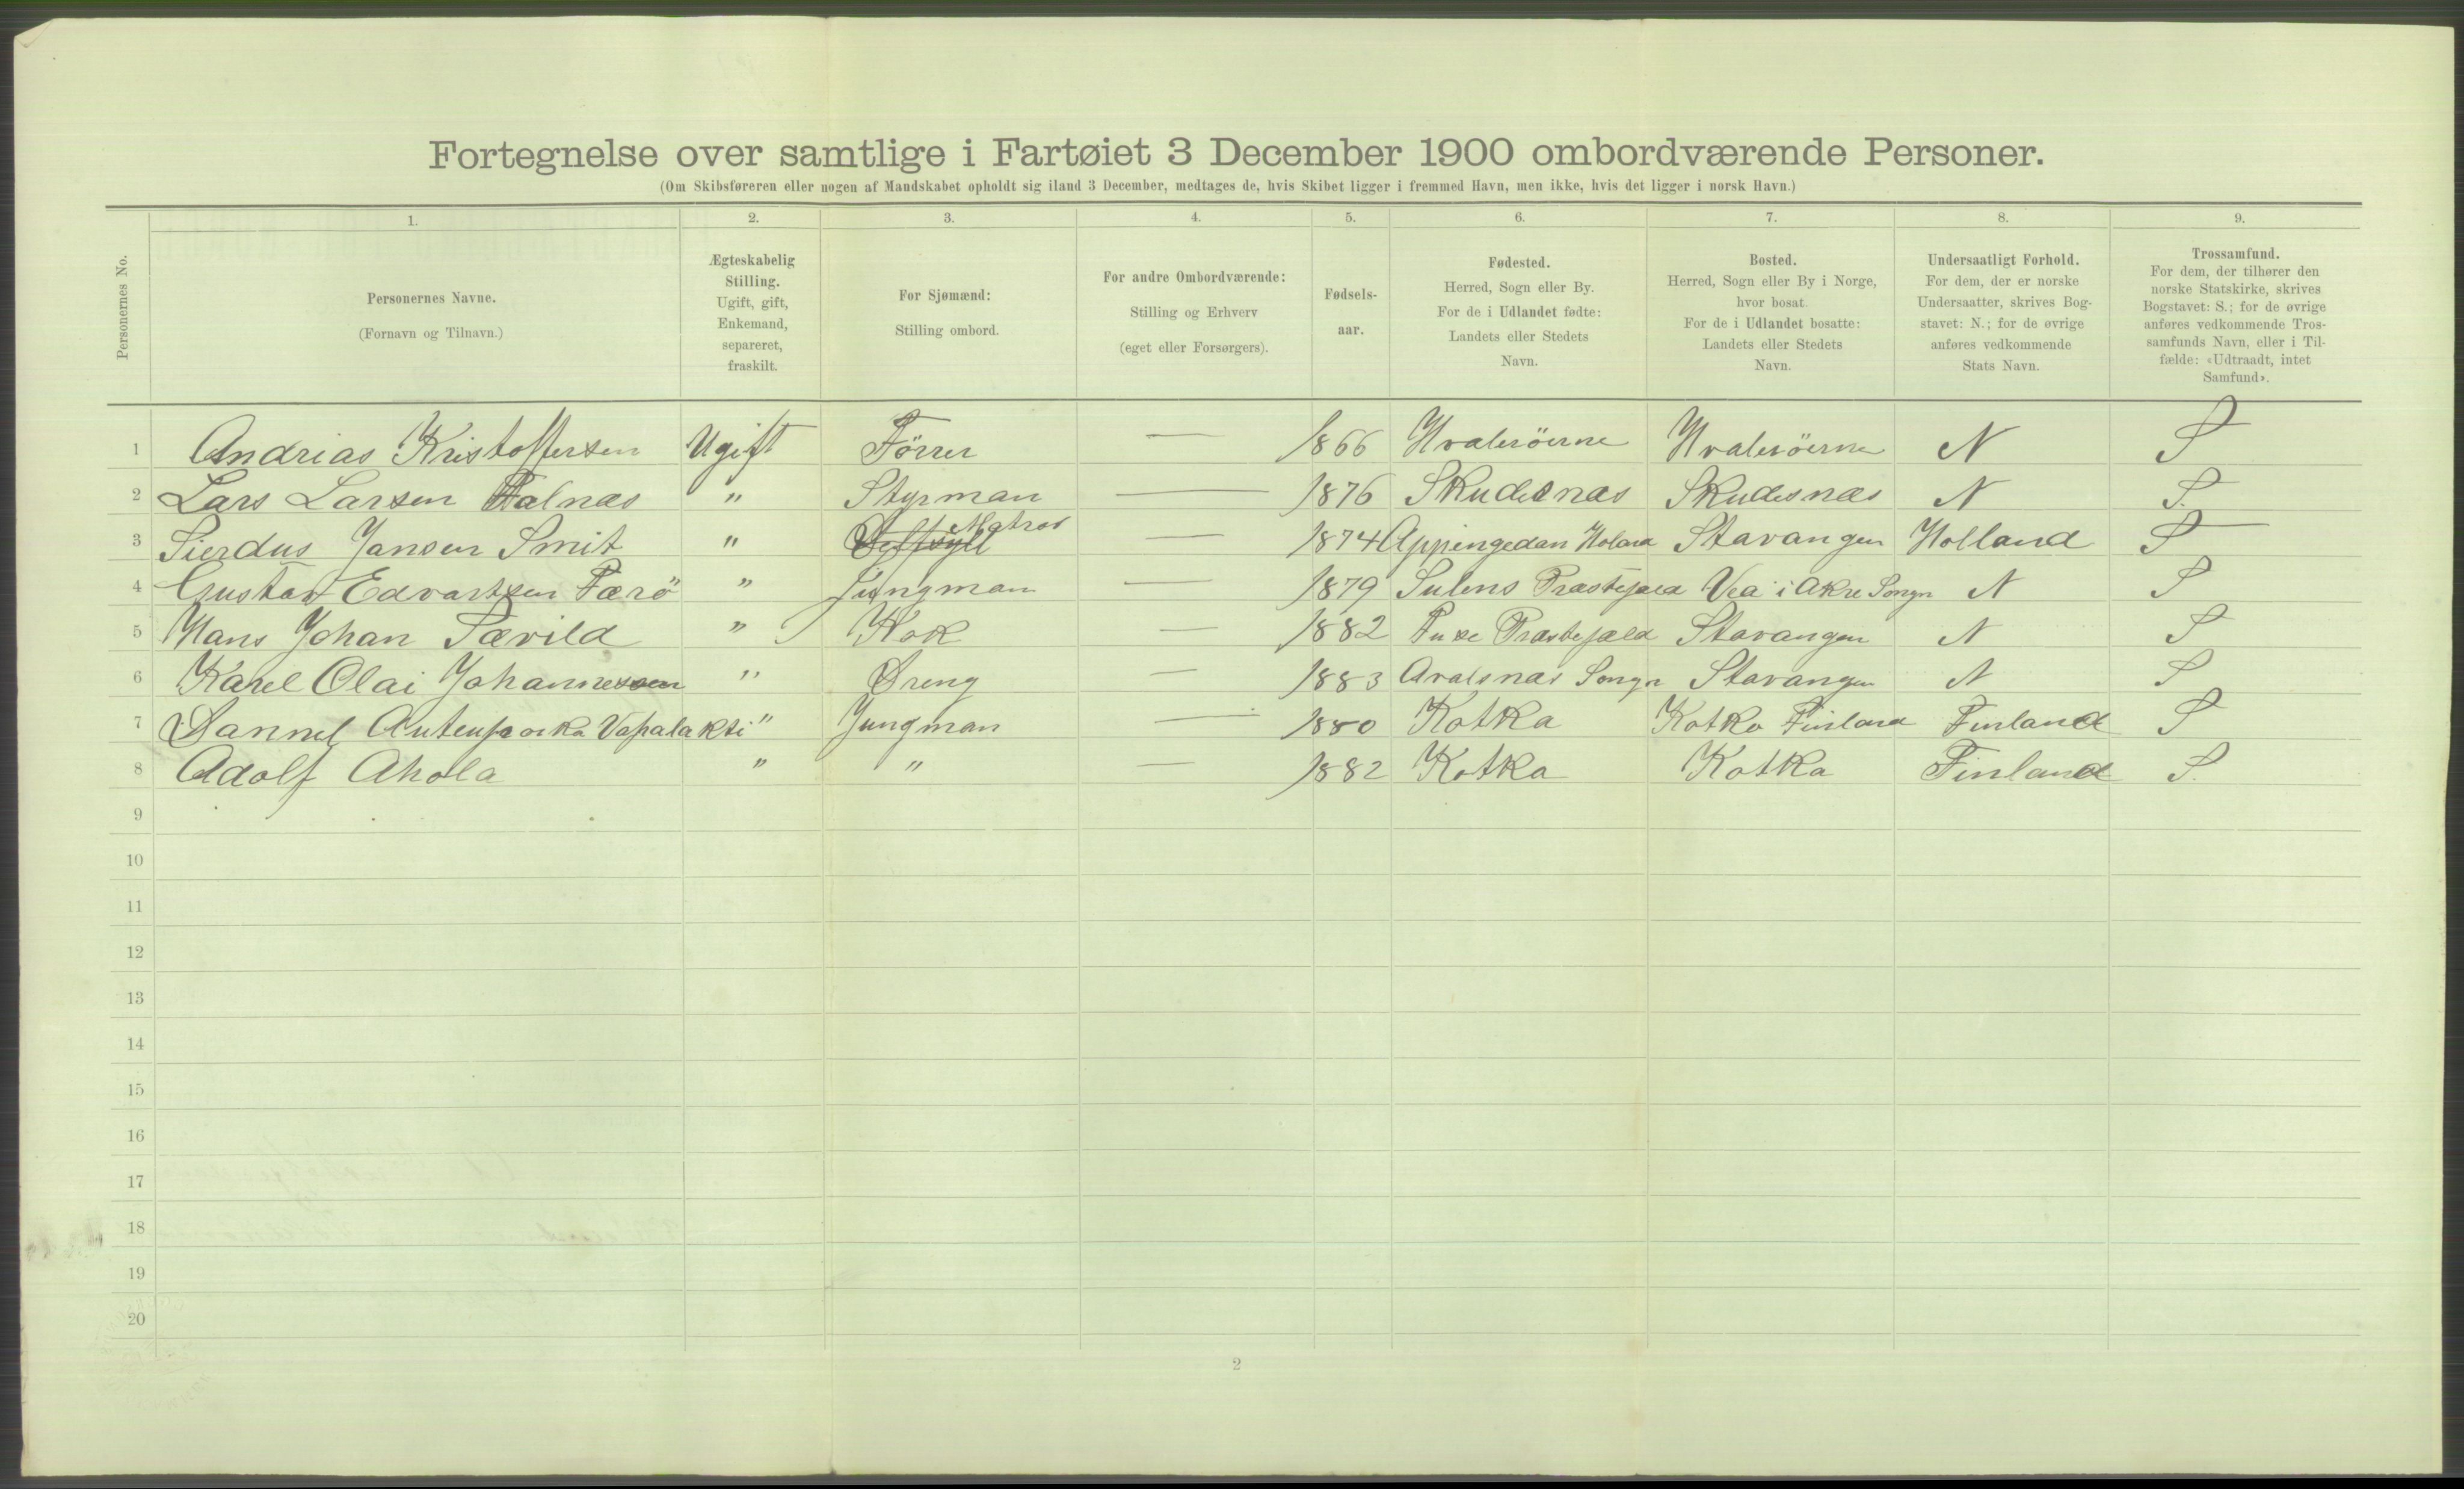 Fortegnelse over samtlige i Fartøiet 3 December 1900 ombordværende Personer.
(Om Skibsføreren eller nogen af Mandskabet opholdt sig iland 3 December, medtages de, hvis Skibet ligger i fremmed Havn, men ikke, hvis det ligger i norsk Havn.)
Personernes No.
1. 2. 3. 4. 5. 6. 7. 8. 9.
Personernes Navne.
(Fornavn og Tilnavn.)
Ægteskabelig
Stilling.
Ugift, gift,
Enkemand,
separeret,
fraskilt.
For Sjømænd:
Stilling ombord.
For andre Ombordværende:
Stilling og Erhverv
(eget eller Forsørgers).
Fødsels-
aar.
Fødested.
Herred, Sogn eller By.
For de i Udlandet fødte:
Landets eller Stedets
Navn.
Bosted.
Herred, Sogn eller By i Norge,
hvor bosat.
For de i Udlandet bosatte:
Landets eller Stedets
Navn.
Undersaatligt Forhold.
For dem, der er norske
Undersaatter, skrives Bog-
stavet: N.; for de øvrige
anføres vedkommende
Stats Navn.
Trossamfund.
For dem, der tilhører den
norske Statskirke, skrives
Bogstavet: S.; for de øvrige
anføres vedkommende Tros-
samfunds Navn, eller i Til-
fælde: «Udtraadt, intet
Samfund».
1 Andrias Kristoffersen Ugift Förrer — 1866 Hvaleröerne Hvaleröerne N S
2 Lars Larsen Falnæs " Styrman — 1876 Skudesnæs Skudesnæs N S.
3 Sierdus Jansen Smit " Matros — 1874 Appingedan Holand Stavanger Holland S
4 Gustav Edvartsen Færö " Jungman — 1879 Sulens Præstejæld Vea i Akre Songn N S
5 Hans Johan Sævild " Kok — 1882 Præstejæld Stavanger N S
6 Karel Olai Johannessen " Dreng — 1883 Avalsnæs Songn Stavanger N S
7 " Jungman — 1880 Kotka Kotka Finland Finland S
8 Adolf Ahola " " — 1882 Kotka Kotka Finland S.
9
10
11
12
13
14
15
16
17
18
19
20
2